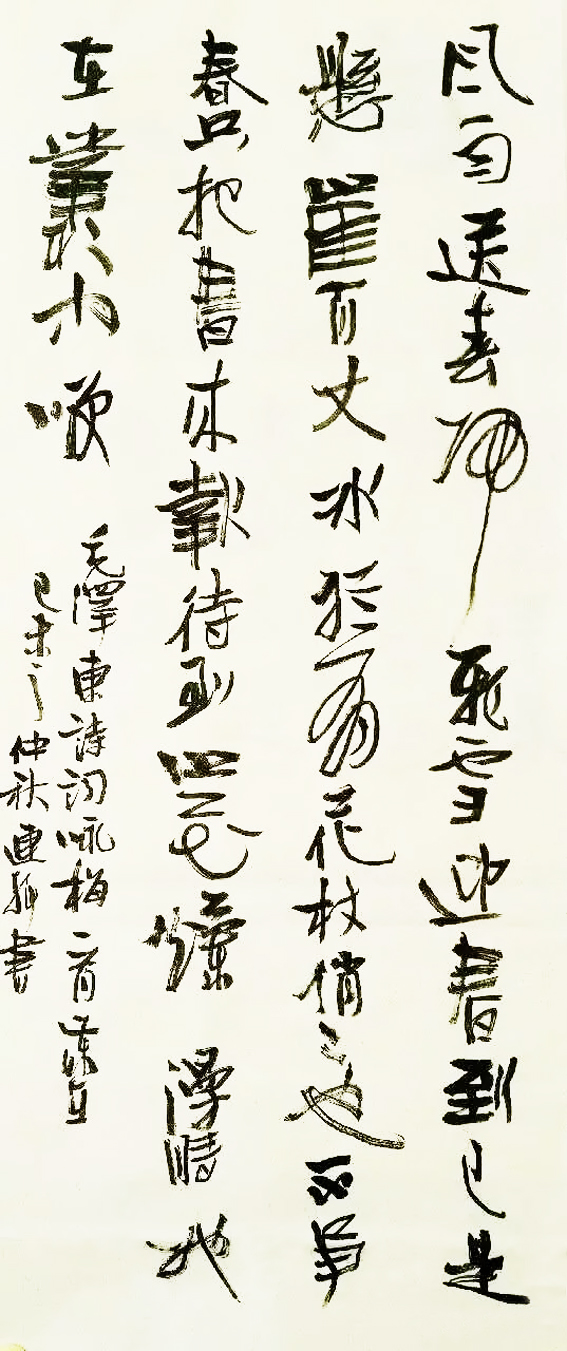 风雨送春归飛雪迎春到已是
懸崖百丈冰犹有花枝俏々也不争
春只把春来報待到山花爛漫時她
在叢中笑
毛澤東詩詞咏梅一首
己未之仲秋連書